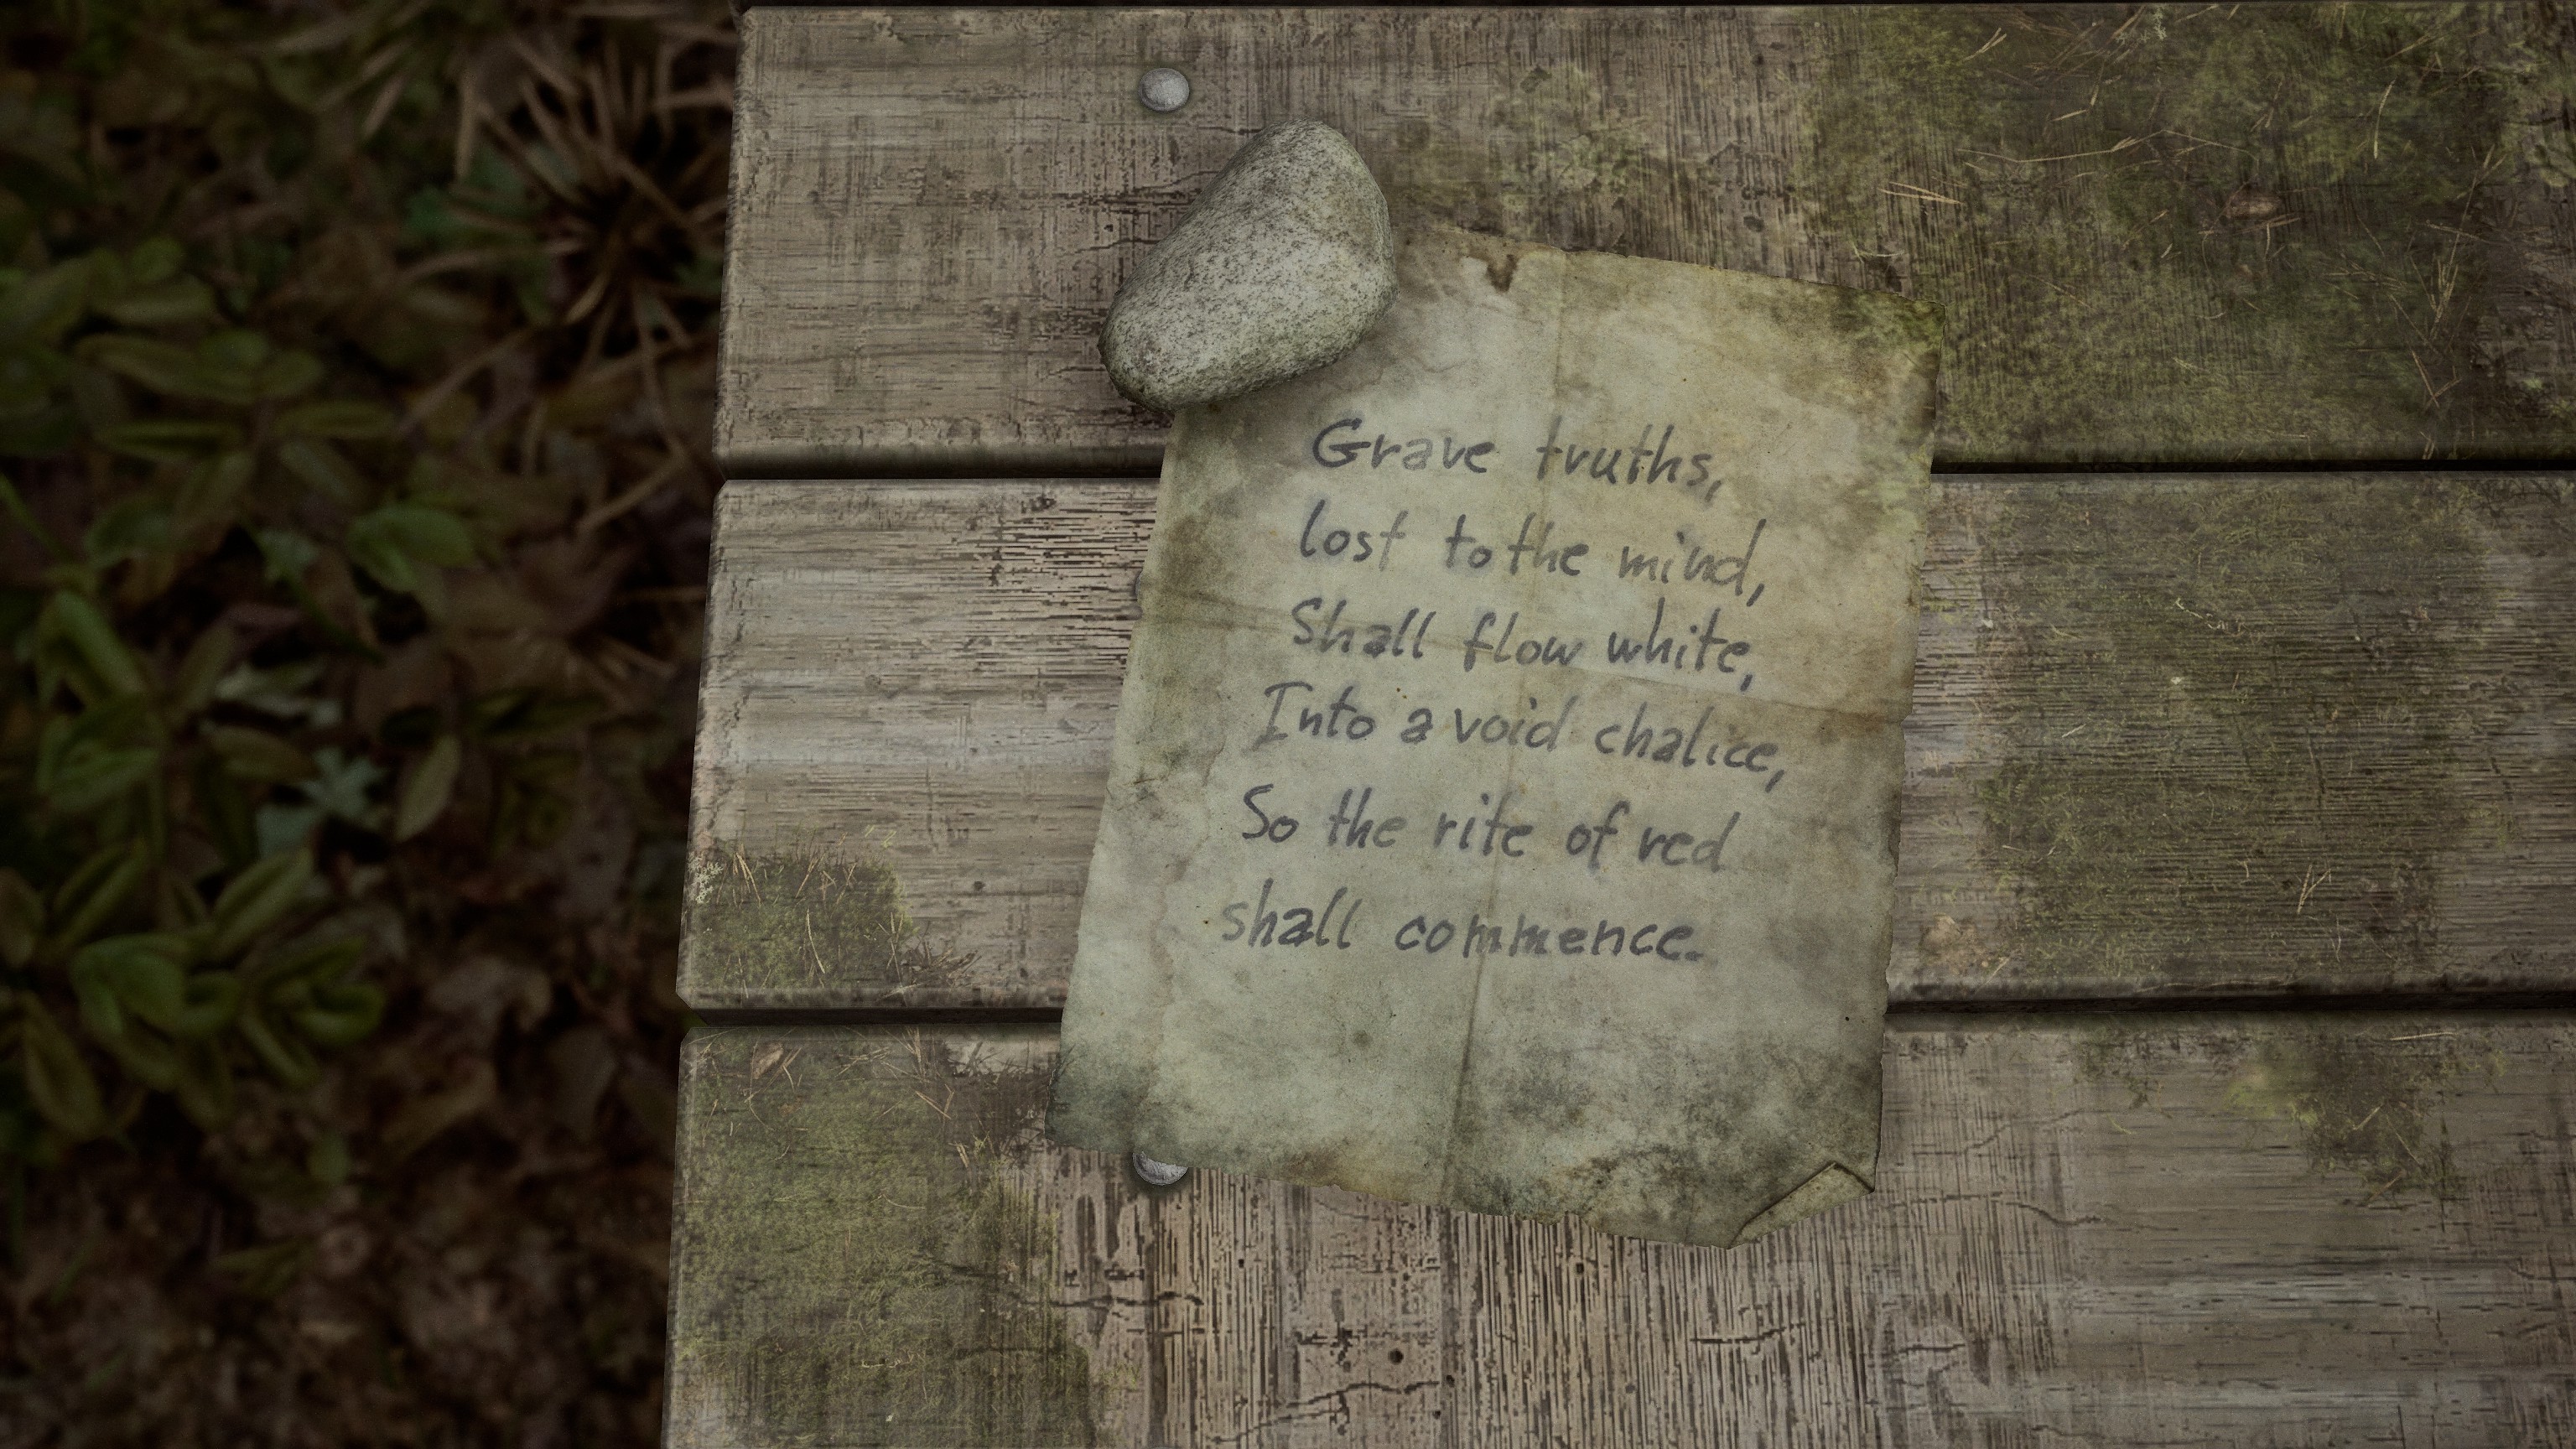 Grave truths,
lost to the mind,
Shall flow white,
Into a void chalice,
So the rite of red
shall commence.